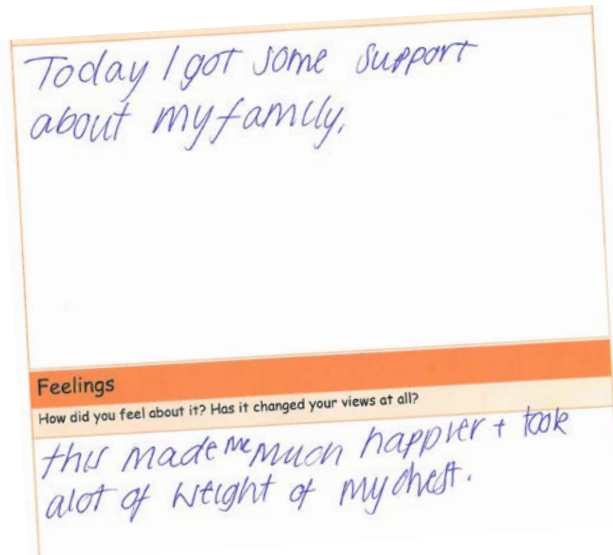 Today I got some support
about my family,
Feelings
How did you feel about it? Has it changed your views at all?
this made me much happier + took
alot of weight of my chest.